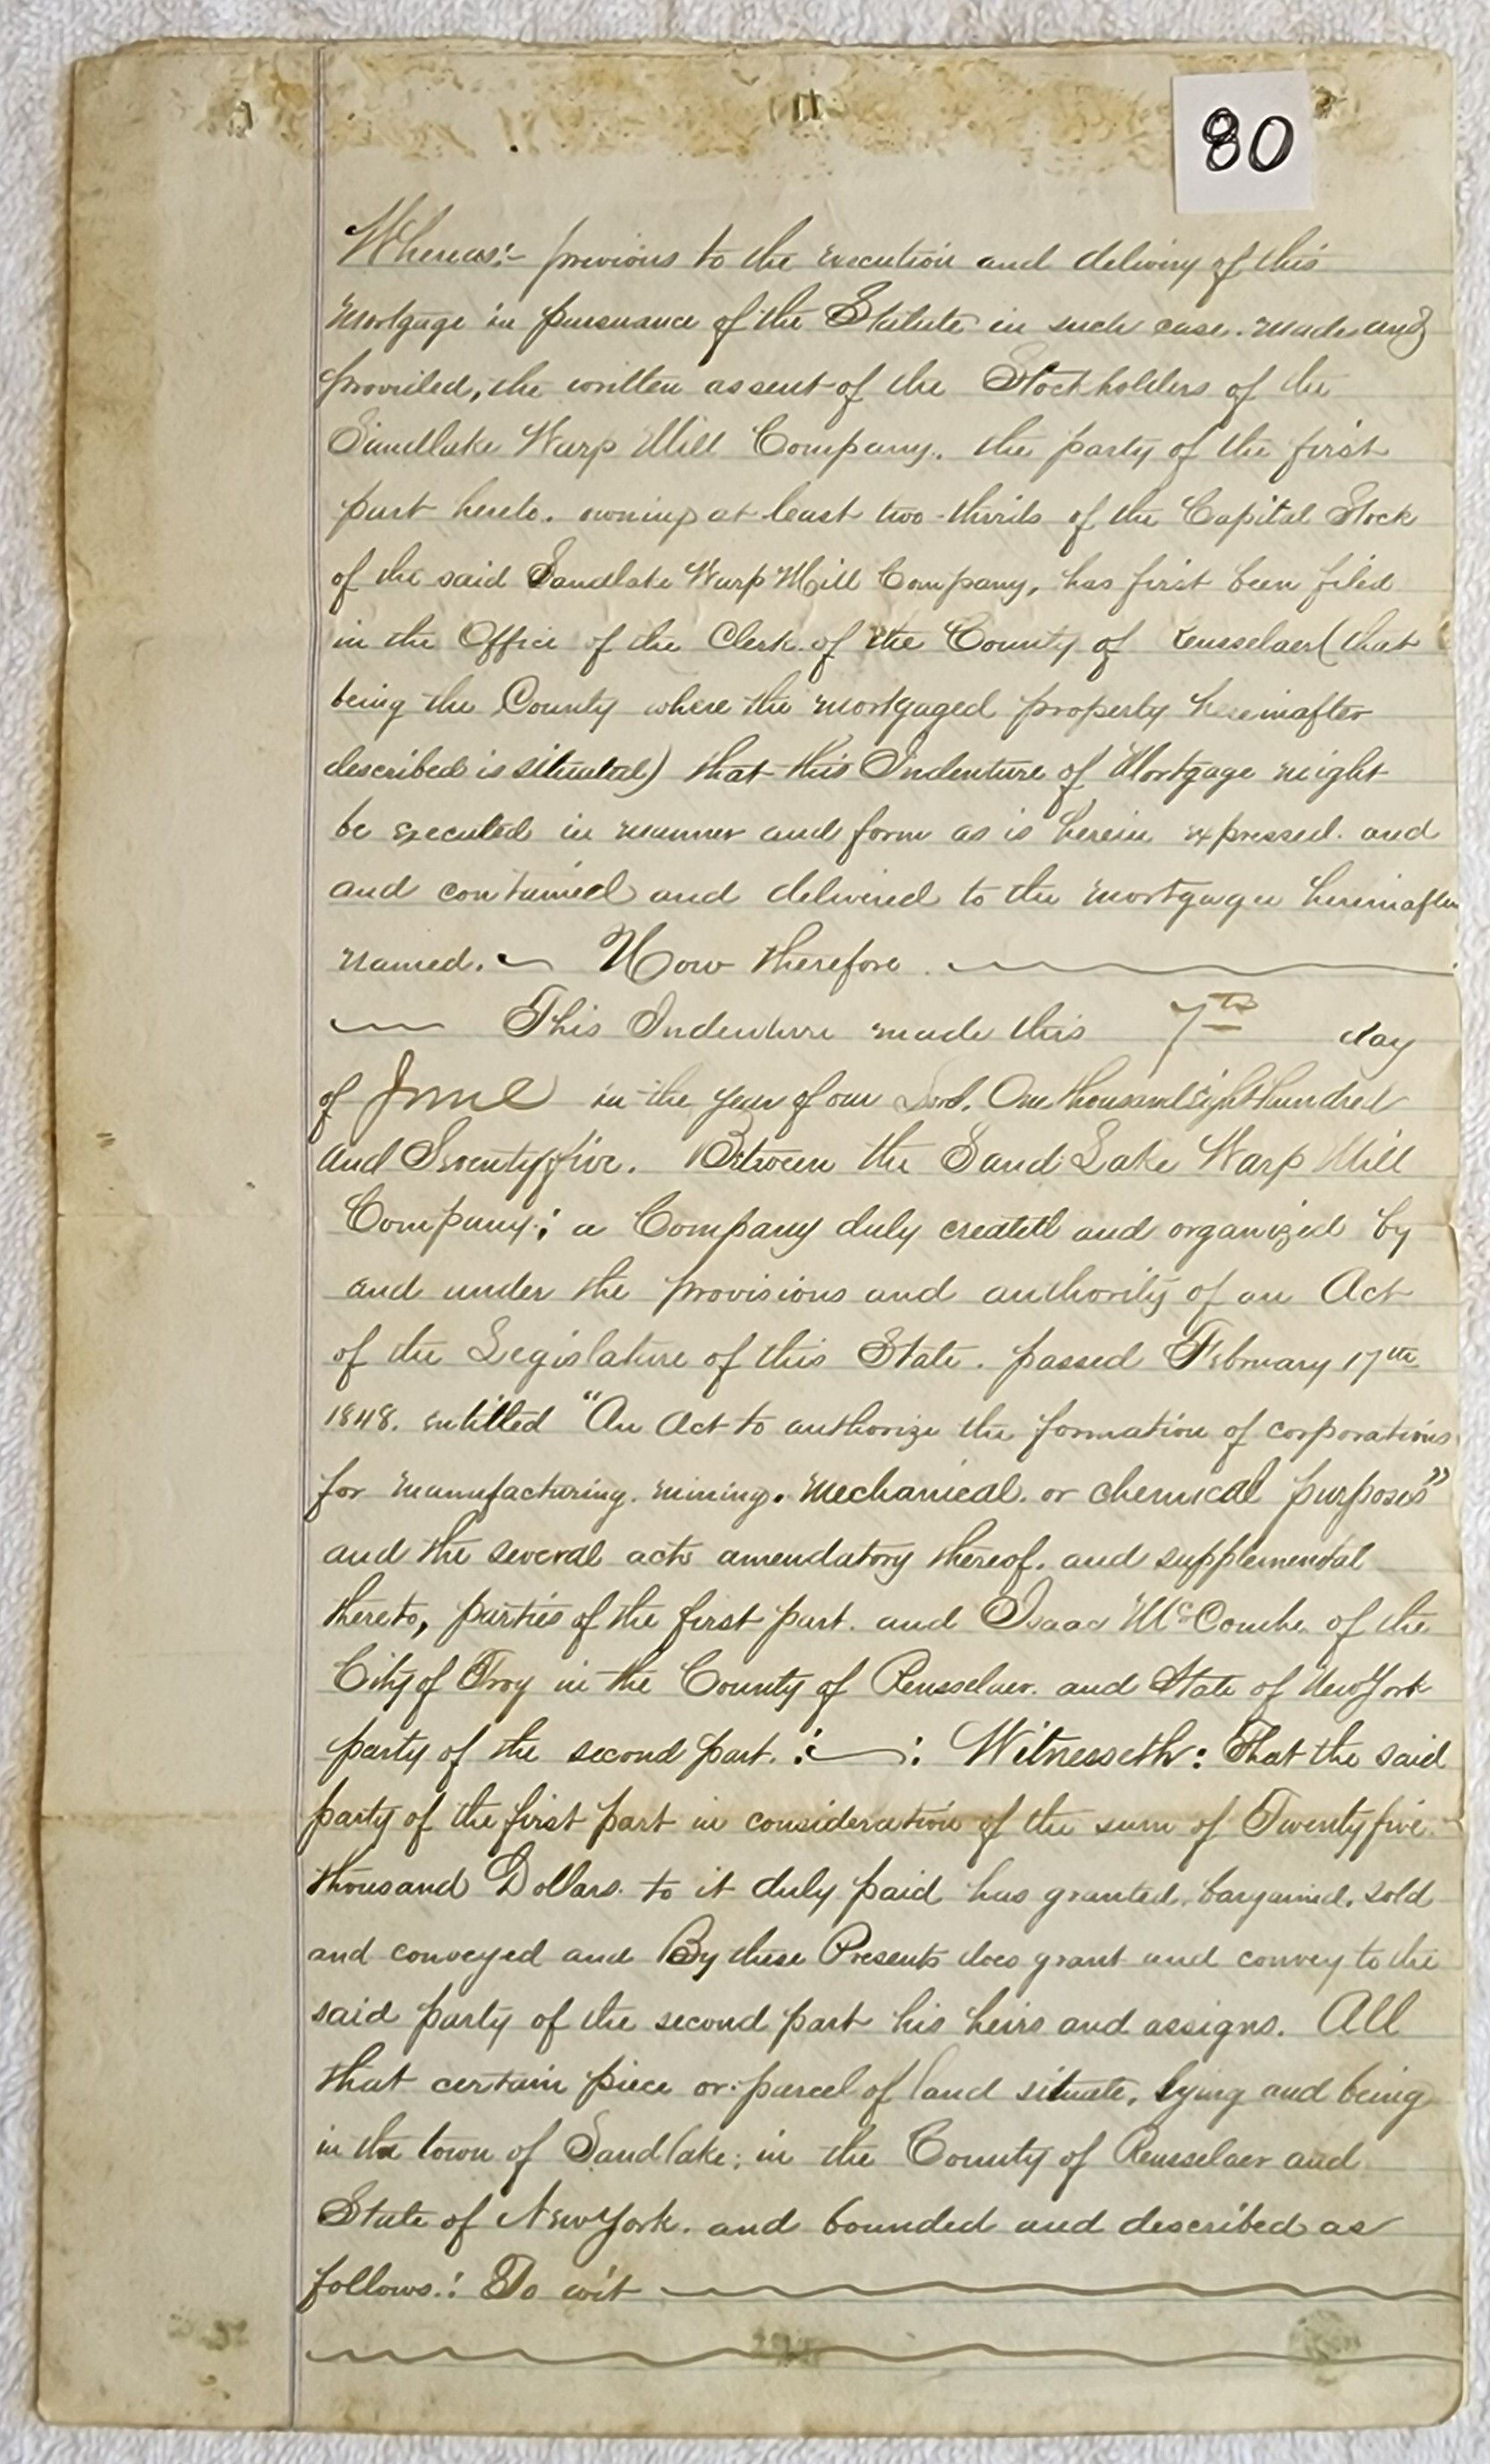 80
Whereas:- previous to the execution and delivery of this
Mortgage in pursuance of the Statute in such case. made and
provided, the written assent of the Stockholders of the
Sandlake Warp Mill Company. the party of the first
part hereto. owning at least two-thirds of the Capital Stock
of the said Sandlake Warp Mill Company, has first been filed
in the Office of the Clerk of the County of Rensselaer (that
being the County where the mortgaged property hereinafter
described is situated) that this Indenture of Mortgage might
be executed in manner and form as is herein expressed. and
and contained and delivered to the mortgagee hereinafter
named. Now therefore.
This Indenture made this 7th day
of June in the year of our Lord. One thousand Eight hundred
and Seventy five. Between the Sand Lake Warp Mill
Company; a Company duly created and organized by
and under the provisions and authority of an Act
of the Legislature of this State. passed February 17th
1848. entitled "An Act to authorize the formation of corporations
for manufacturing. mining. mechanical. or chemical purposes"
and the several acts amendatory thereof. and supplemental
thereto, parties of the first part. and Isaac McConihe of the
City of Troy in the County of Rensselaer. and State of New York
party of the second part. : : Witnesseth: That the said
party of the first part in consideration of the sum of Twenty five
thousand Dollars. to it duly paid has granted, bargained, sold
and conveyed and By these Presents does grant and convey to the
said party of the second part his heirs and assigns. All
that certain piece or parcel of land situate, lying and being
in the town of Sandlake; in the County of Rensselaer and
State of New York. and bounded and described as
follows.: To wit